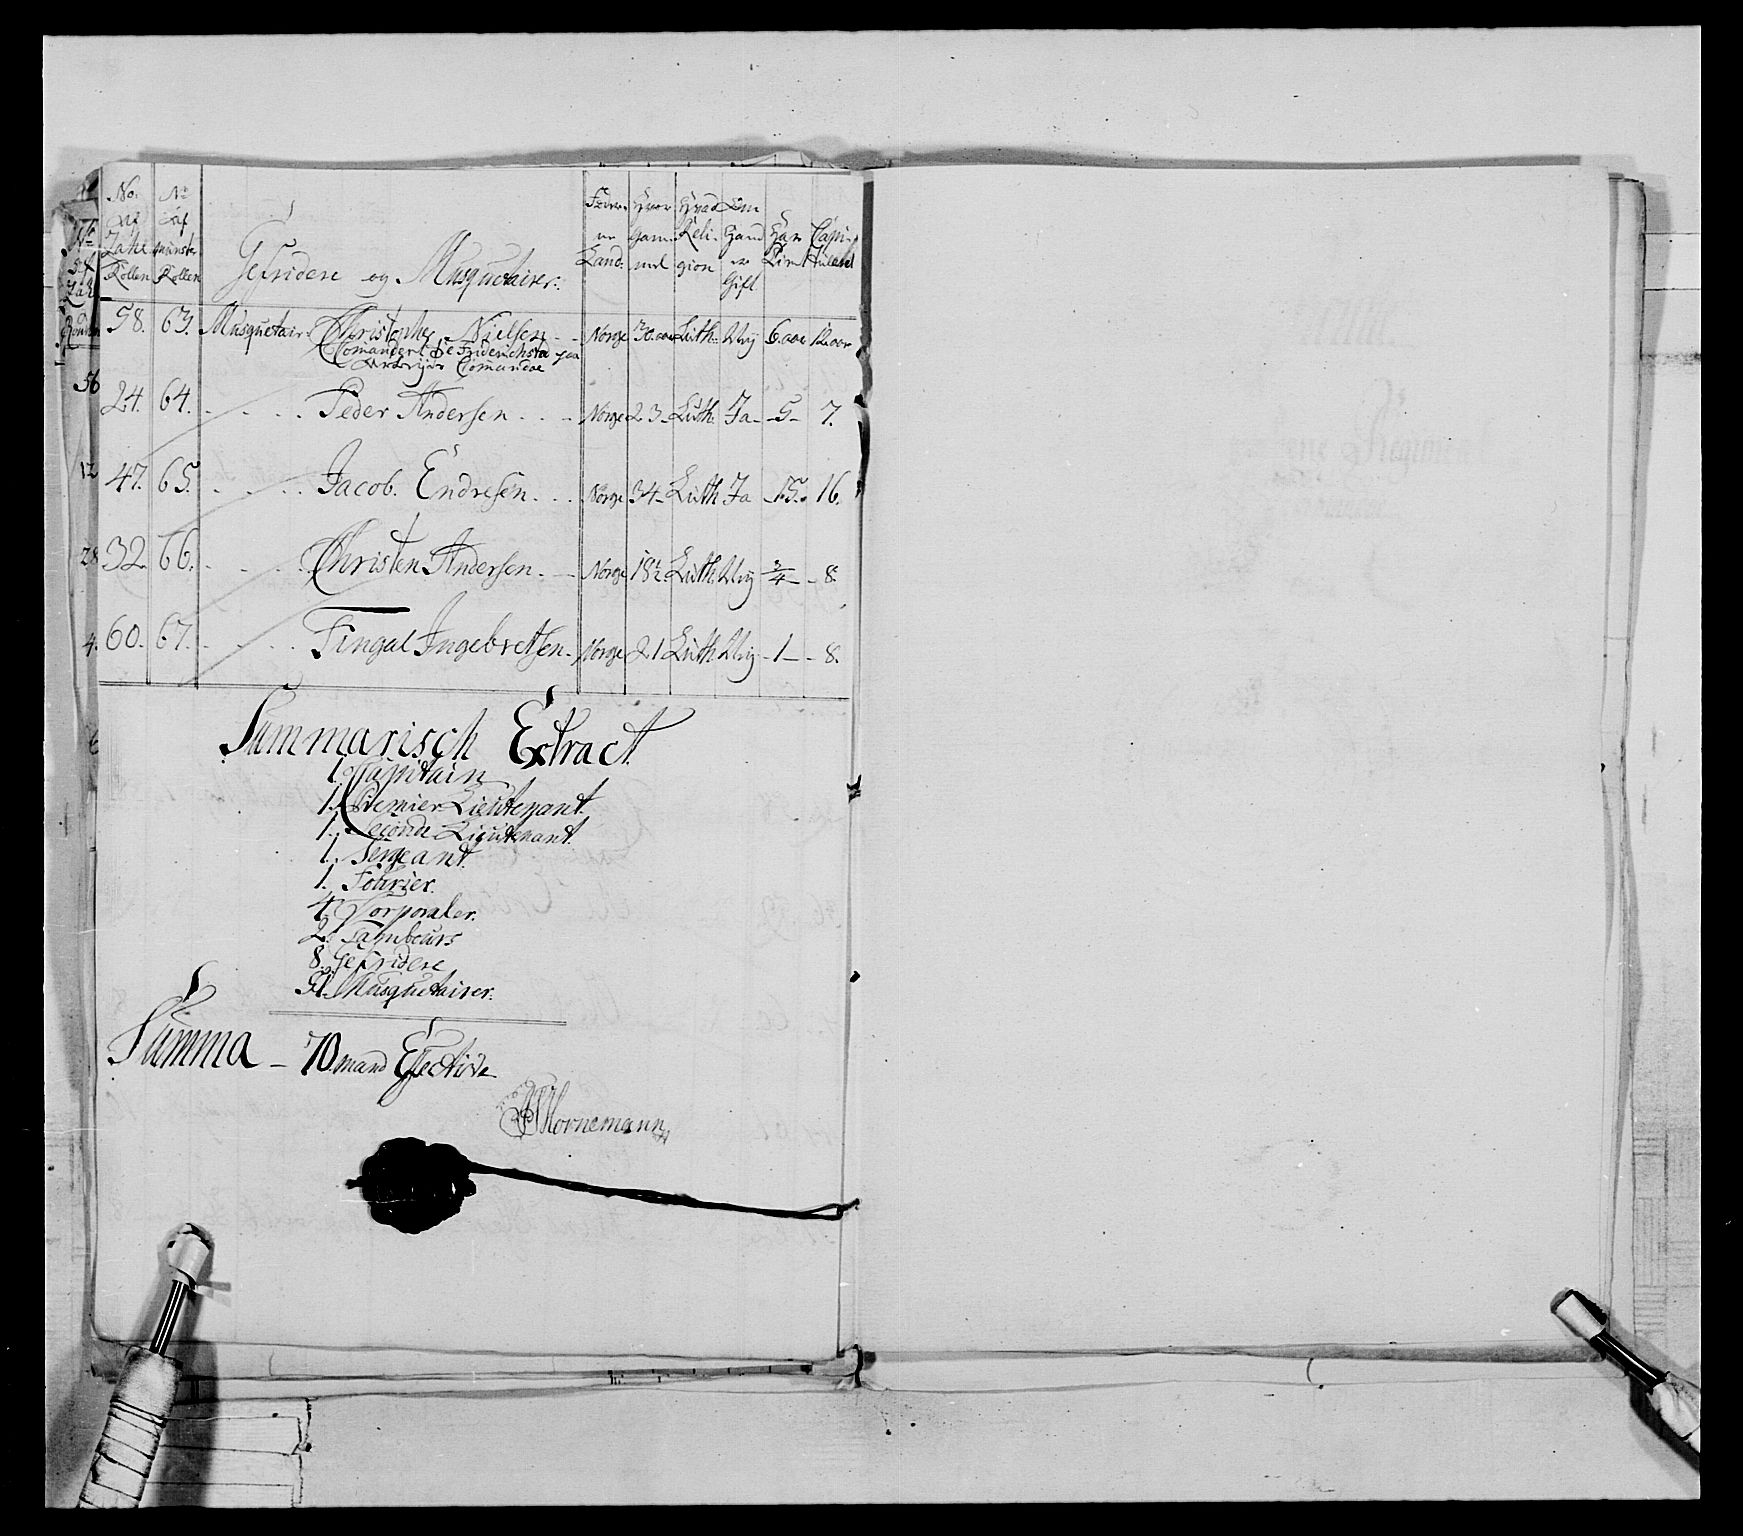 No. Af Zahl Rollen | No Af Munster Rollen | Gefridere og Musquetairer. | Føder Land. | Hvor gam- mel | Hvad Reli- gion | Om Hand er Gift | Har Tient | Capi- tuleret
58. 63. Musquetair Christopher Nielsen - - Norge 30. aar Luth. Ung 6. aar 12. aar
Comandert
Comandoe
56
24. 64. . . . Peder Andersen . . - Norge 23 - Luth. Ja - 5 - 7.
12 47. 65. . . . Jacob. Endresen . . . Norge 34 - Luth Ja - 15. - 16.
28 32. 66. . . . Christen Andersen . - Norge 18½ Luth. Ung 3/4 - 8.
4. 60. 67. . . . Fingal Ingebretsen. Norge 21 Luth Ung - 1 - - 8.
Summarisch Extract
1. Capitain
1. Premier Lieutenant.
1. Seconde Lieutenant.
1. Sergeant.
1. Fourier.
4. Corporaler.
2. Tambours
8. Gefridere
51. Musquetairer.
Summa - 70. mand Effective
Hornemann